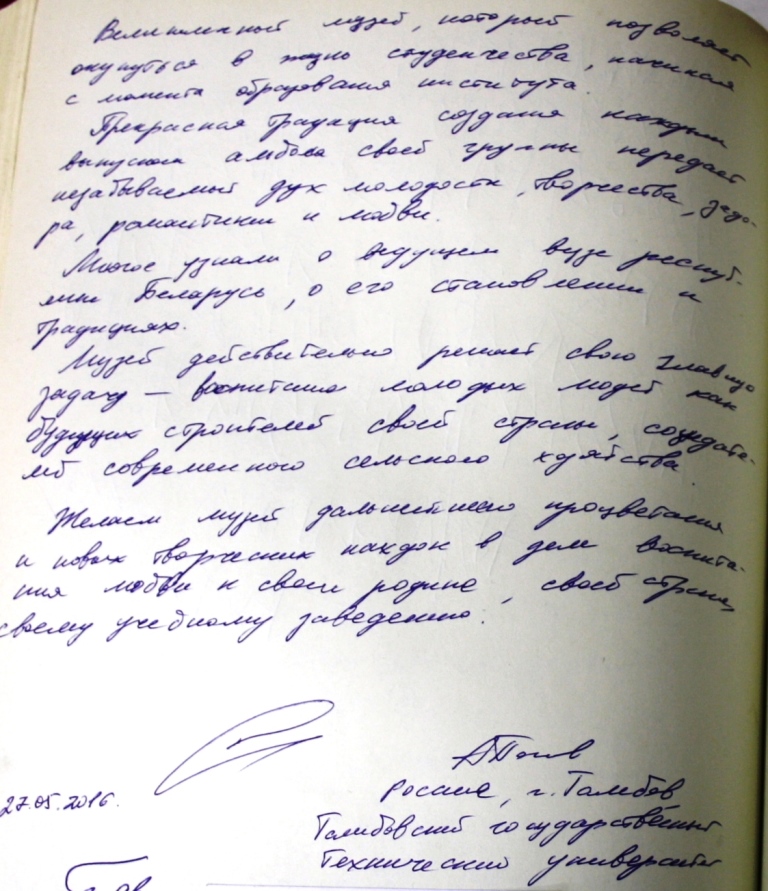 Великолепный музей, который позволяет
окунуться в жизнь студенчества, начиная
с момента образования института.
Прекрасная традиция создания каждым
выпуском альбома своей группы передает
незабываемый дух молодости, творчества, задо-
ра, романтики и любви.
Многое узнали о ведущем вузе респуб-
лики Беларусь, о его становлении и
традициях.
Музей действительно решает свою главную
задачу – воспитания молодых людей как
будущих строителей своей страны, создате-
лей современного сельского хозяйства.
Желаем музею дальнейшего процветания
и новых творческих находок в деле воспита-
ния любви к своей родине, своей стране,
своему учебному заведению.
27.05.2016.
Россия, г. Тамбов
Тамбовский государственный
технический университет